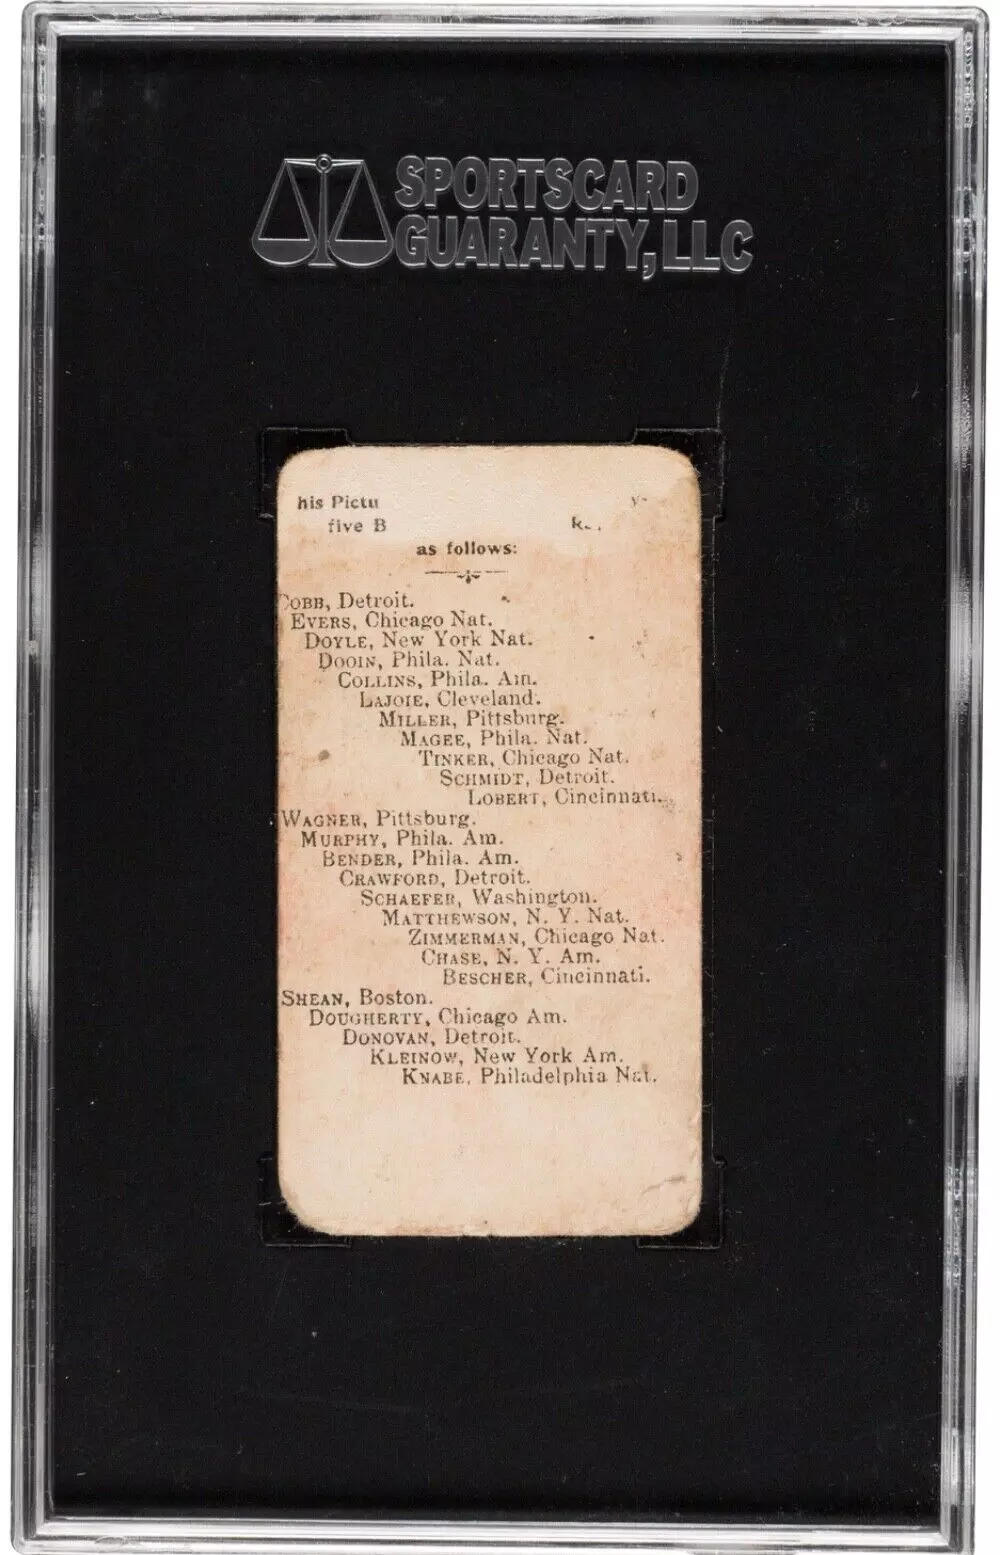 SPORTSCARD
GUARANTY, LLC
his Pictu
five B
as follows:
OBB, Detroit.
EVERS, Chicago Nat.
DOYLE, New York Nat.
DOOIN, Phila. Nat.
COLLINS, Phila. Am.
LAJOIE, Cleveland.
MILLER, Pittsburg.
MAGEE, Phila. Nat.
TINKER, Chicago Nat.
SCHMIDT, Detroit.
LOBERT, Cincinnati.
WAGNER, Pittsburg.
MURPHY, Phila. Am.
BENDER, Phila. Am.
CRAWFORD, Detroit.
SCHAEFER, Washington.
MATTHEWSON, N. Y. Nat.
ZIMMERMAN, Chicago Nat.
CHASE, N. Y. Am.
BESCHER, Cincinnati.
SHEAN, Boston.
DOUGHERTY, Chicago Am.
DONOVAN, Detroit.
KLEINOW, New York Am.
KNABE, Philadelphia Nat.